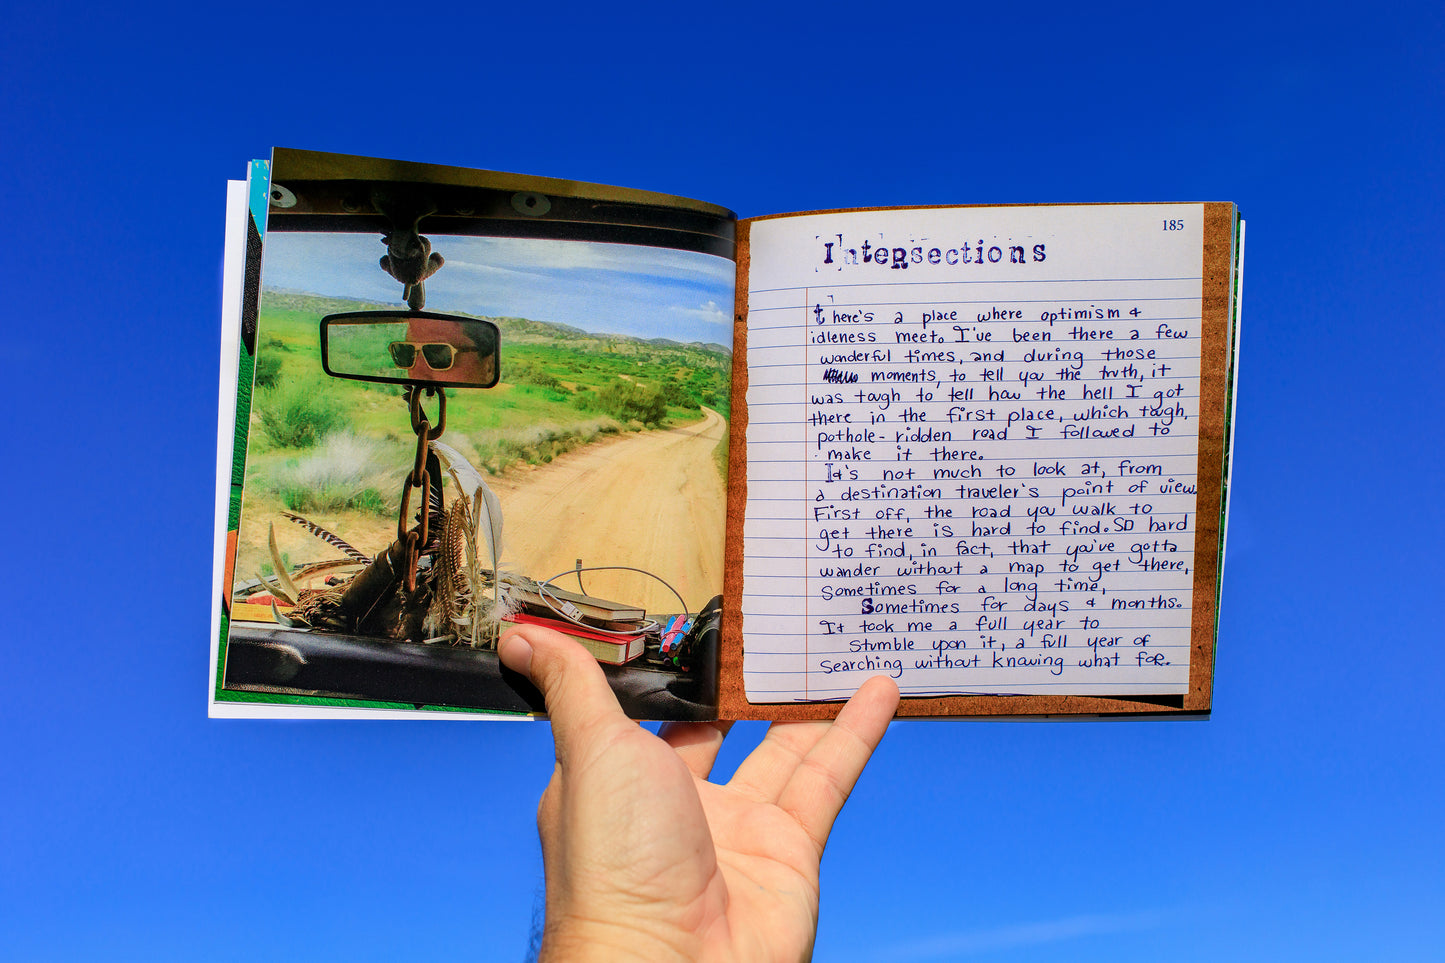 185
Intersections
there's a place where optimism &
idleness meet. I've been there a few
wonderful times, and during those
moments, to tell you the truth, it
was tough to tell how the hell I got
there in the first place, which tough,
pothole-ridden road I followed to
make it there.
It's not much to look at, from
a destination traveler's point of view.
First off, the road you walk to
get there is hard to find. SO hard
to find, in fact, that you've gotta
wander without a map to get there,
Sometimes for a long time,
Sometimes for days & months.
It took me a full year to
Stumble upon it, a full year of
Searching without knowing what for.